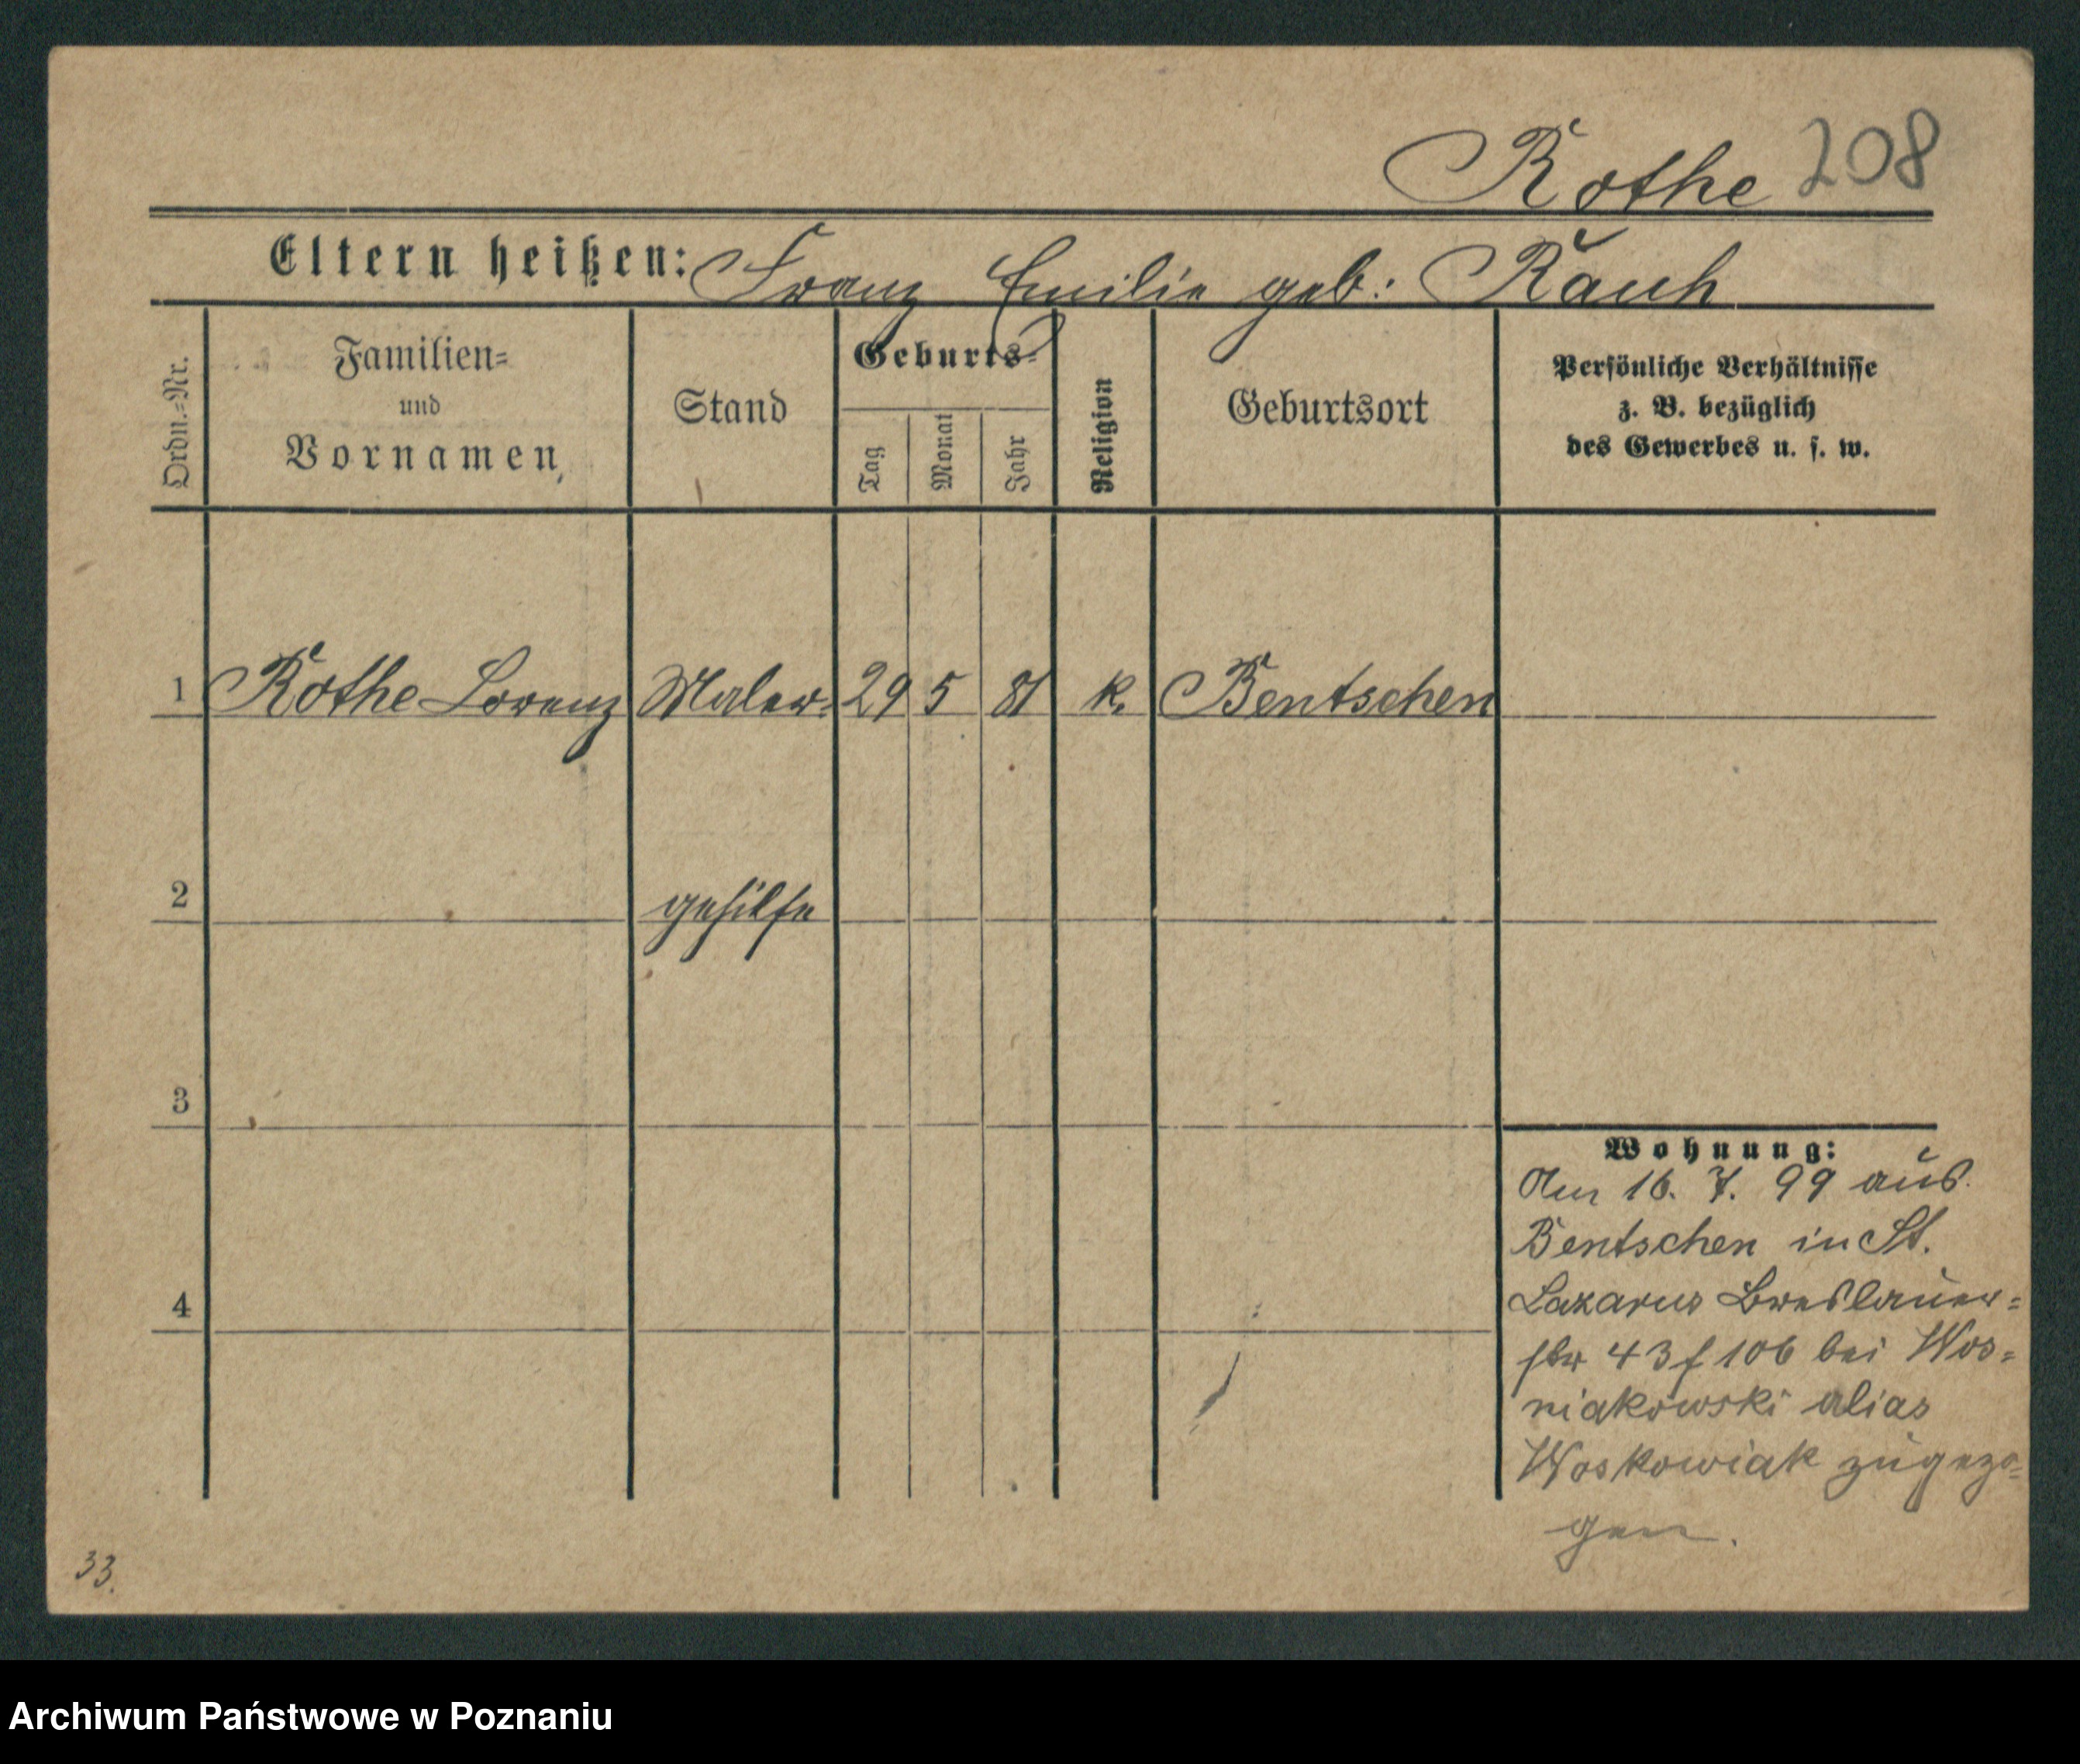 Rothe 208
Eltern heißen: Franz Emilie geb: Rauh
Ordn.=Nr.
Familien=
und
Vornamen
Stand
Geburts=
Tag
Monat
Jahr
Religion
Geburtsort
Persönliche Verhältnisse
z. B. bezüglich
des Gewerbes u. s. w.
1 Rothe Lorenz Maler= 29 5 81 k. Bentschen
2 gehilfe
3
4
Wohnung:
Am 16. 7. 99 aus
Bentschen in St.
Lazarus Breslauer=
str 43 f 106 bei Wos=
niakowski alias
Woskowiak zugezo=
gen.
33.
Archiwum Państwowe w Poznaniu